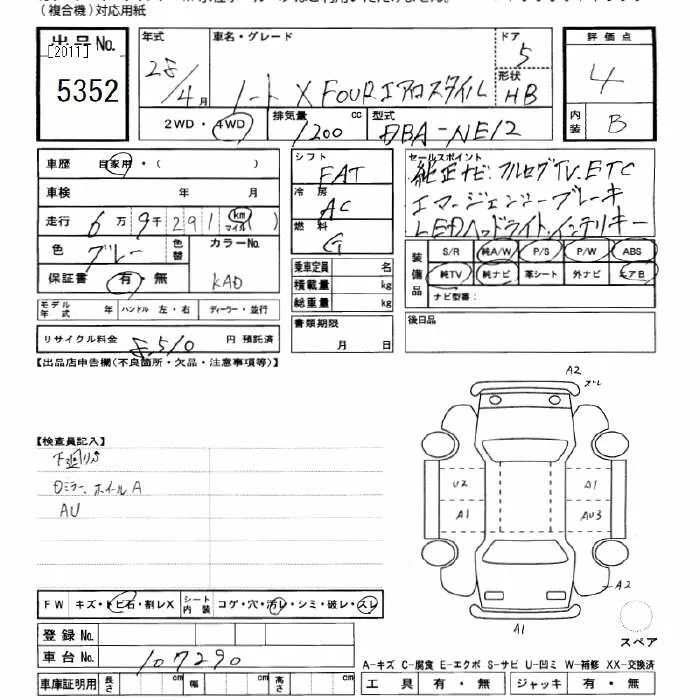 (複合機)対応用紙
出品No.
[201T]
5352
年式
28/4月
車名・グレード
ノート X FOURエアロスタイル
ドア
5
形状
HB
評価点
4
内装
B
2WD・4WD
排気量 cc
1200
型式
DBA-NE12
車歴 自家用・( )
車検 年 月
走行 6万9千291 km マイル )
色 グレー 色替 カラーNo. KAD
保証書 有・無
モデル年式 年 ハンドル 左・右 ディーラー・並行
リサイクル料金 8,510 円 預託済
シフト
FAT
冷房
AC
燃料
G
乗車定員 名
積載量 kg
総重量 kg
書類期限
月 日
セールスポイント
純正ナビ.フルセグTV.ETC
エマージェンシーブレーキ
LEDヘッドライト.インテリキー
装備品
S/R 純A/W P/S P/W ABS
純TV 純ナビ 革シート 外ナビ エアB
ナビ型番:
後日品
【出品店申告欄(不良箇所・欠品・注意事項等)】
【検査員記入】
下廻りサ
ロミラー、ホイールA
AU
A2
ズレ
U2
A1
A1
AU3
A2
A1
スペア
FW キズ・トビ石・割レX シート内装 コゲ・穴・汚レ・シミ・破レ・スレ
登録No.
車台No. 107290
車庫証明用 長さ cm 幅 cm 高さ cm
A-キズ C-腐食 E-エクボ S-サビ U-凹ミ W-補修 XX-交換済
工具 有・無 ジャッキ 有・無